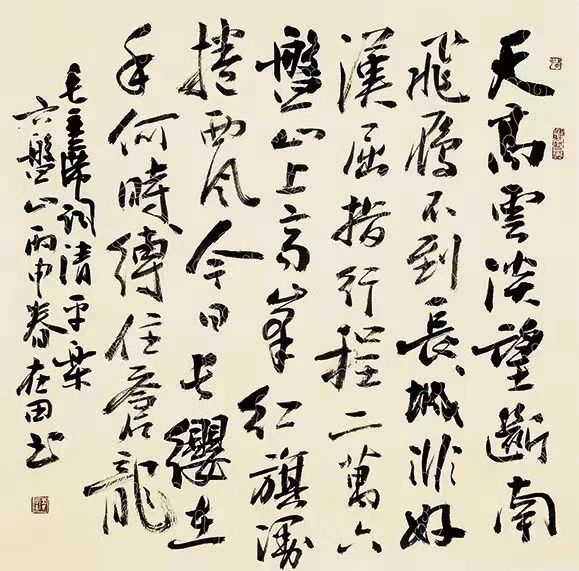 天高雲淡望斷南
飛雁不到長城非好
漢屈指行程二萬六
盤山上高峯紅旗漫
捲西風今日長纓在
手何時縛住蒼龍
毛主席詞清平樂
六盤山丙申春在田书